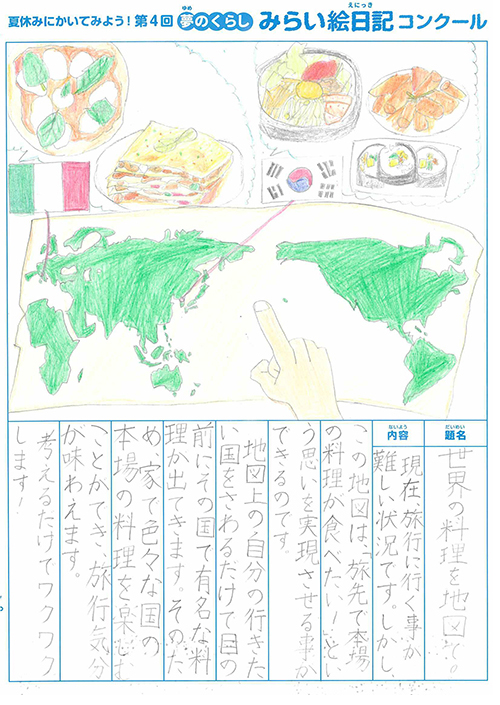 夏休みにかいてみよう!第4回 夢のくらし みらい絵日記コンクール
ゆめ
えにっき
だいめい
題名
世界の料理を地図で。
ないよう
内容
現在旅行に行く事が
難しい状況です。しかし、
この地図は、「旅先で本場
の料理が食べたい!」とい
う思いを実現させる事が
できるのです。
地図上の自分の行きた
い国をさわるだけで目の
前にその国で有名な料
理が出てきます。そのた
め、家で色々な国の
本場の料理を楽しむ
ことができ、旅行気分
が味わえます。
考えるだけでワクワク
します!